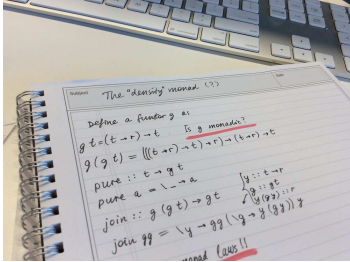 Subject
The "density" monad (?)
Date
Define a functor g as:
g t = (t → r) → t
Is g monadic?
g (g t) = (((t → r) → t) → r) → (t → r) → t
pure :: t → g t
pure a = \_ → a
join :: g (g t) → g t
join gg = \y → gg (\g → y (g y)) y
y :: t → r
g :: g t
y (g y) :: r
monad laws!!